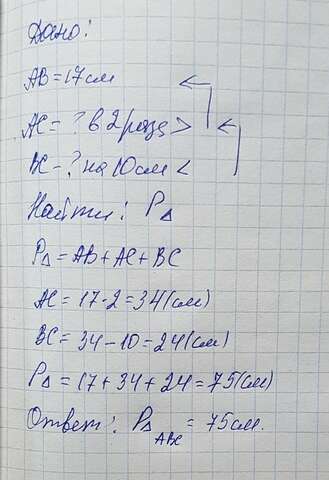 Дано:
АВ = 17 см
АС = ? в 2 раза >
ВС - ? на 10 см <
Найти: P△
P△ = АВ + АС + ВС
АС = 17 · 2 = 34 (см)
ВС = 34 - 10 = 24 (см)
P△ = 17 + 34 + 24 = 75 (см)
Ответ: P△ABC = 75 см.